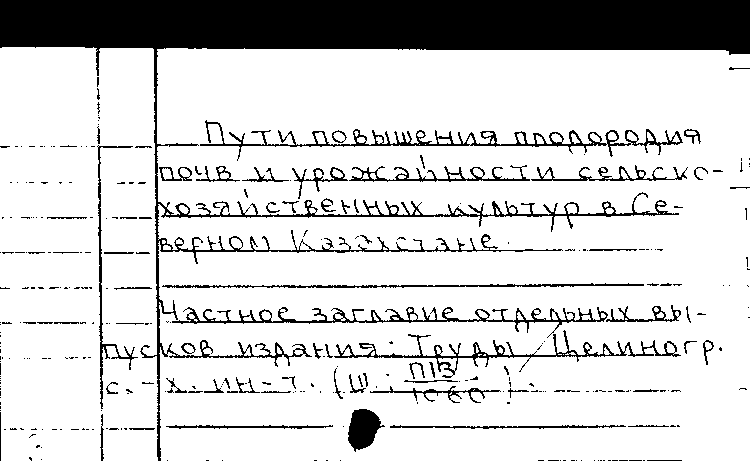 Пути повышения плодородия
почв и урожайности сельско-
хозяйственных культур в Се-
верном Казахстане.
Частное заглавие отдельных вы-
пусков издания: Труды Целиногр.
с.-х. ин-т. (Ш: П13/1060).